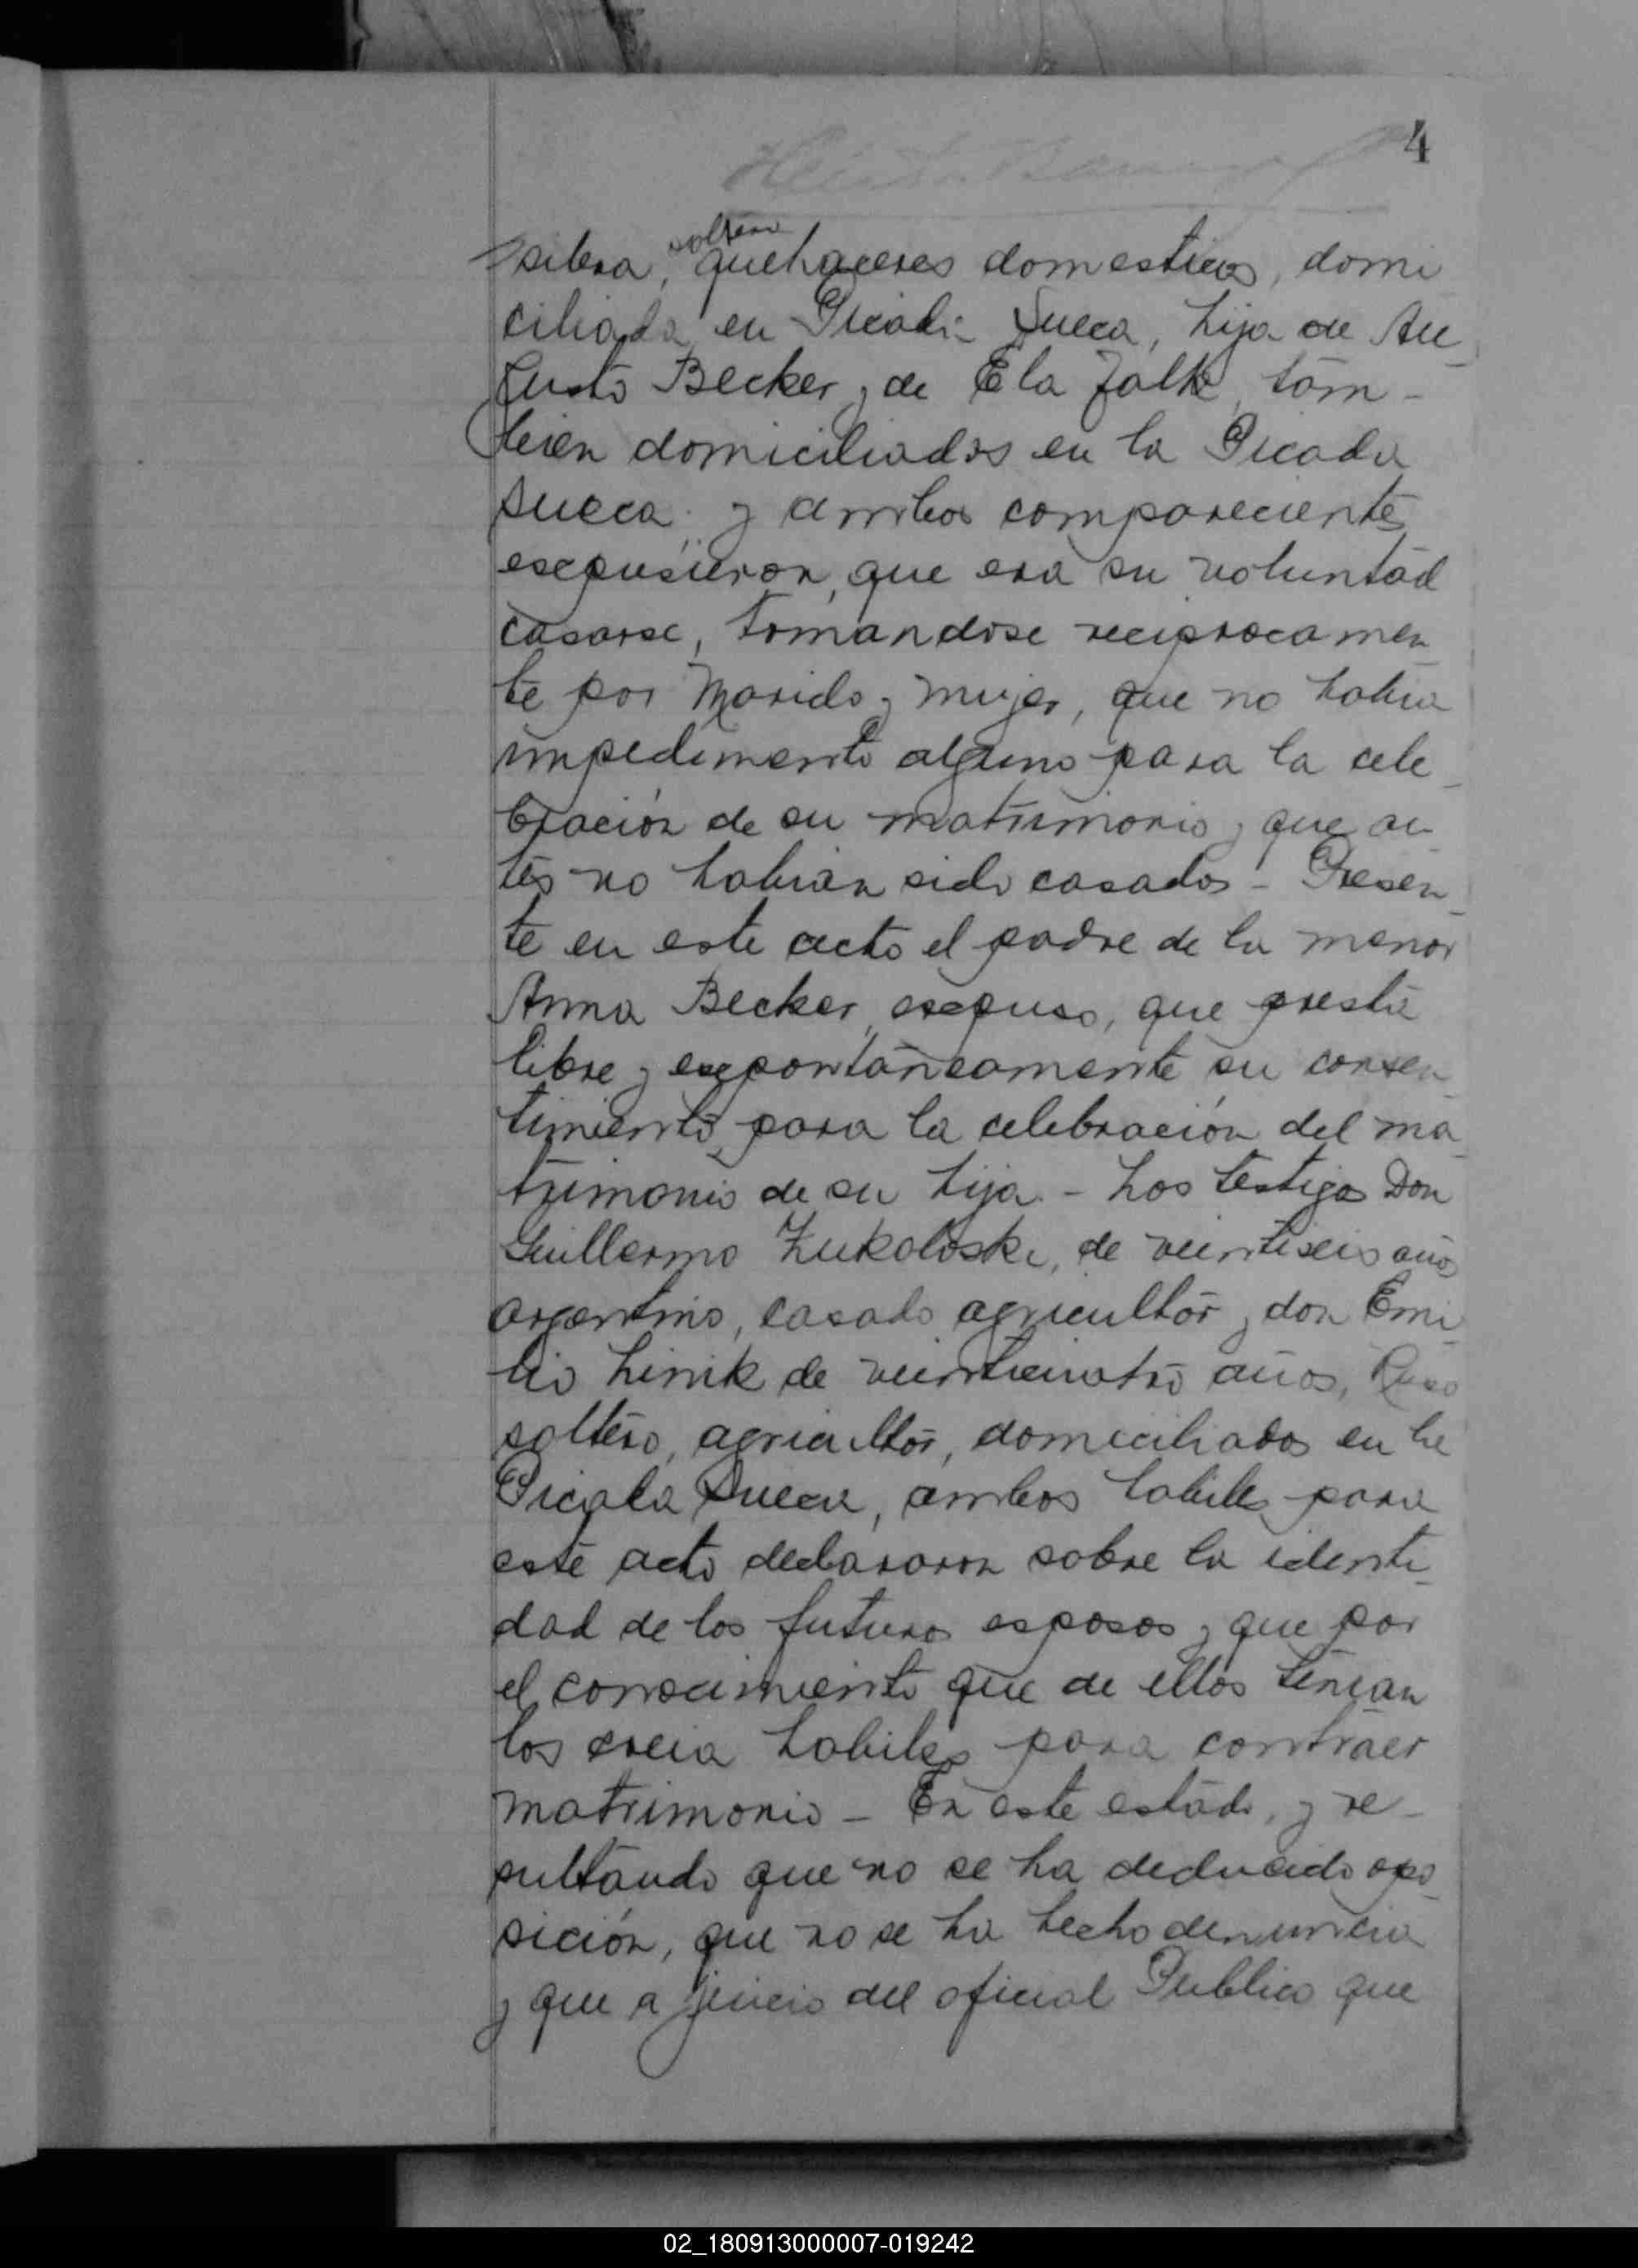 4
soltera
silera, quehaceres domesticos, domi
ciliada en Picada Sueca, hija de Au
gusto Becker y de Ela Falk, tam-
bien domiciliados en la Picada
Sueca y ambos comparecientes
escpusieron, que era su voluntad
casarse, tomandose reciprocamen
te por Marido y mujer, que no habia
impedimento alguno para la cele
bración de su matrimonio y que an
tes no habian sido casados - Presen
te en este acto el padre de la menor
Anna Becker, escpuso, que presta
libre y escpontáneamente su consen
timiento para la celebración del ma
trimonio de su hija. - Los testigos Don
Guillermo Zukoloski, de veintiseis años
argentino, casado agricultor y don Emi
lio Linik de veinticuatro años, Ruso
soltero, agricultor, domiciliados en la
Picada Sueca, ambos habiles para
este acto declararon sobre la identi
dad de los futuros esposos y que por
el conocimiento que de ellos tenian
los creia habiles para contraer
matrimonio - En este estado, y re-
sultando que no se ha deducido opo
sición, que no se ha hecho denuncia
y que a juicio del oficial Publico que
02_180913000007-019242